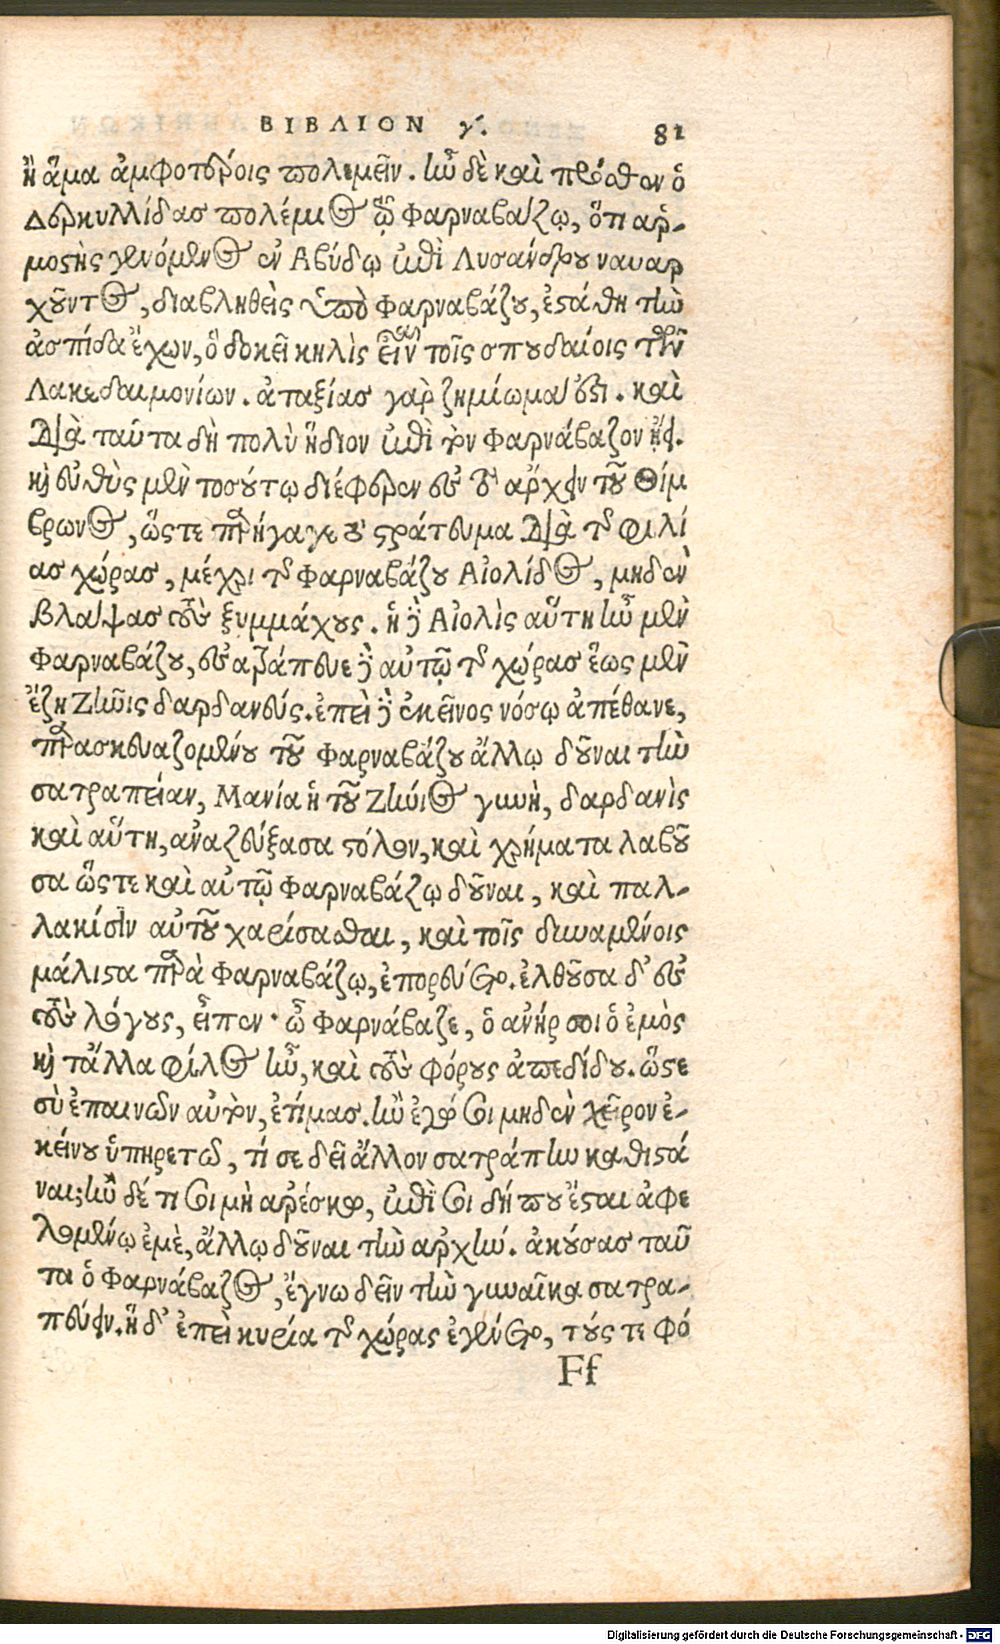 ΒΙΒΛΙΟΝ γ'. 81
ἢ ἅμα ἀμφοτέροις πολεμεῖν. ἦν δὲ καὶ πρόσθεν ὁ
Δερκυλλίδας πολέμιος τῷ Φαρναβάζῳ, ὅτι ἁρ-
μοστὴς γενόμενος ἐν Ἀβύδῳ ἐπὶ Λυσάνδρου ναυαρ
χοῦντος, διαβληθεὶς ὑπὸ Φαρναβάζου, ἐστάθη τὴν
ἀσπίδα ἔχων, ὃ δοκεῖ κηλὶς εἶναι τοῖς σπουδαίοις τῶν
Λακεδαιμονίων. ἀταξίας γὰρ ζημίωμά ἐστι. καὶ
διὰ ταῦτα δὴ πολὺ ἥδιον ἐπὶ τὸν Φαρνάβαζον ᾔει.
καὶ εὐθὺς μὲν τοσούτῳ διέφερεν εἰς τὸ ἄρχειν τοῦ Θίμ
βρωνος, ὥστε παρήγαγε τὸ στράτευμα διὰ τῆς φιλί
ας χώρας, μέχρι τῆς Φαρναβάζου Αἰολίδος, μηδὲν
βλάψας τοὺς ξυμμάχους. ἡ δὲ Αἰολὶς αὕτη ἦν μὲν
Φαρναβάζου, ἐσατράπευε δὲ αὐτῷ τῆς χώρας ἕως μὲν
ἔζη Ζῆνις δαρδανεύς. ἐπεὶ δὲ ἐκεῖνος νόσῳ ἀπέθανε,
παρασκευαζομένου τοῦ Φαρναβάζου ἄλλῳ δοῦναι τὴν
σατραπείαν, Μανία ἡ τοῦ Ζήνιος γυνὴ, δαρδανὶς
καὶ αὕτη, ἀναζεύξασα στόλον, καὶ χρήματα λαβοῦ
σα ὥστε καὶ αὐτῷ Φαρναβάζῳ δοῦναι, καὶ παλ-
λακίσιν αὐτοῦ χαρίσασθαι, καὶ τοῖς δυναμένοις
μάλιστα παρὰ Φαρναβάζῳ, ἐπορεύετο. ἐλθοῦσα δ' εἰς
τοὺς λόγους, εἶπεν· ὦ Φαρνάβαζε, ὁ ἀνήρ σοι ὁ ἐμὸς
καὶ τἄλλα φίλος ἦν, καὶ τοὺς φόρους ἀπεδίδου. ὥστε
σὺ ἐπαινῶν αὐτὸν, ἐτίμας. ἢν ἐγώ σοι μηδὲν χεῖρον ἐ-
κείνου ὑπηρετῶ, τί σε δεῖ ἄλλον σατράπην καθιστά
ναι; ἢν δέ τι σοι μὴ ἀρέσκω, ἐπὶ σοι δήπου ἔσται ἀφε
λομένῳ ἐμὲ, ἄλλῳ δοῦναι τὴν ἀρχήν. ἀκούσας ταῦ
τα ὁ Φαρνάβαζος, ἔγνω δεῖν τὴν γυναῖκα σατρα-
πεύειν. ἡ δ' ἐπεὶ κυρία τῆς χώρας ἐγένετο, τούς τε φό
Ff
Digitalisierung gefördert durch die Deutsche Forschungsgemeinschaft - DFG